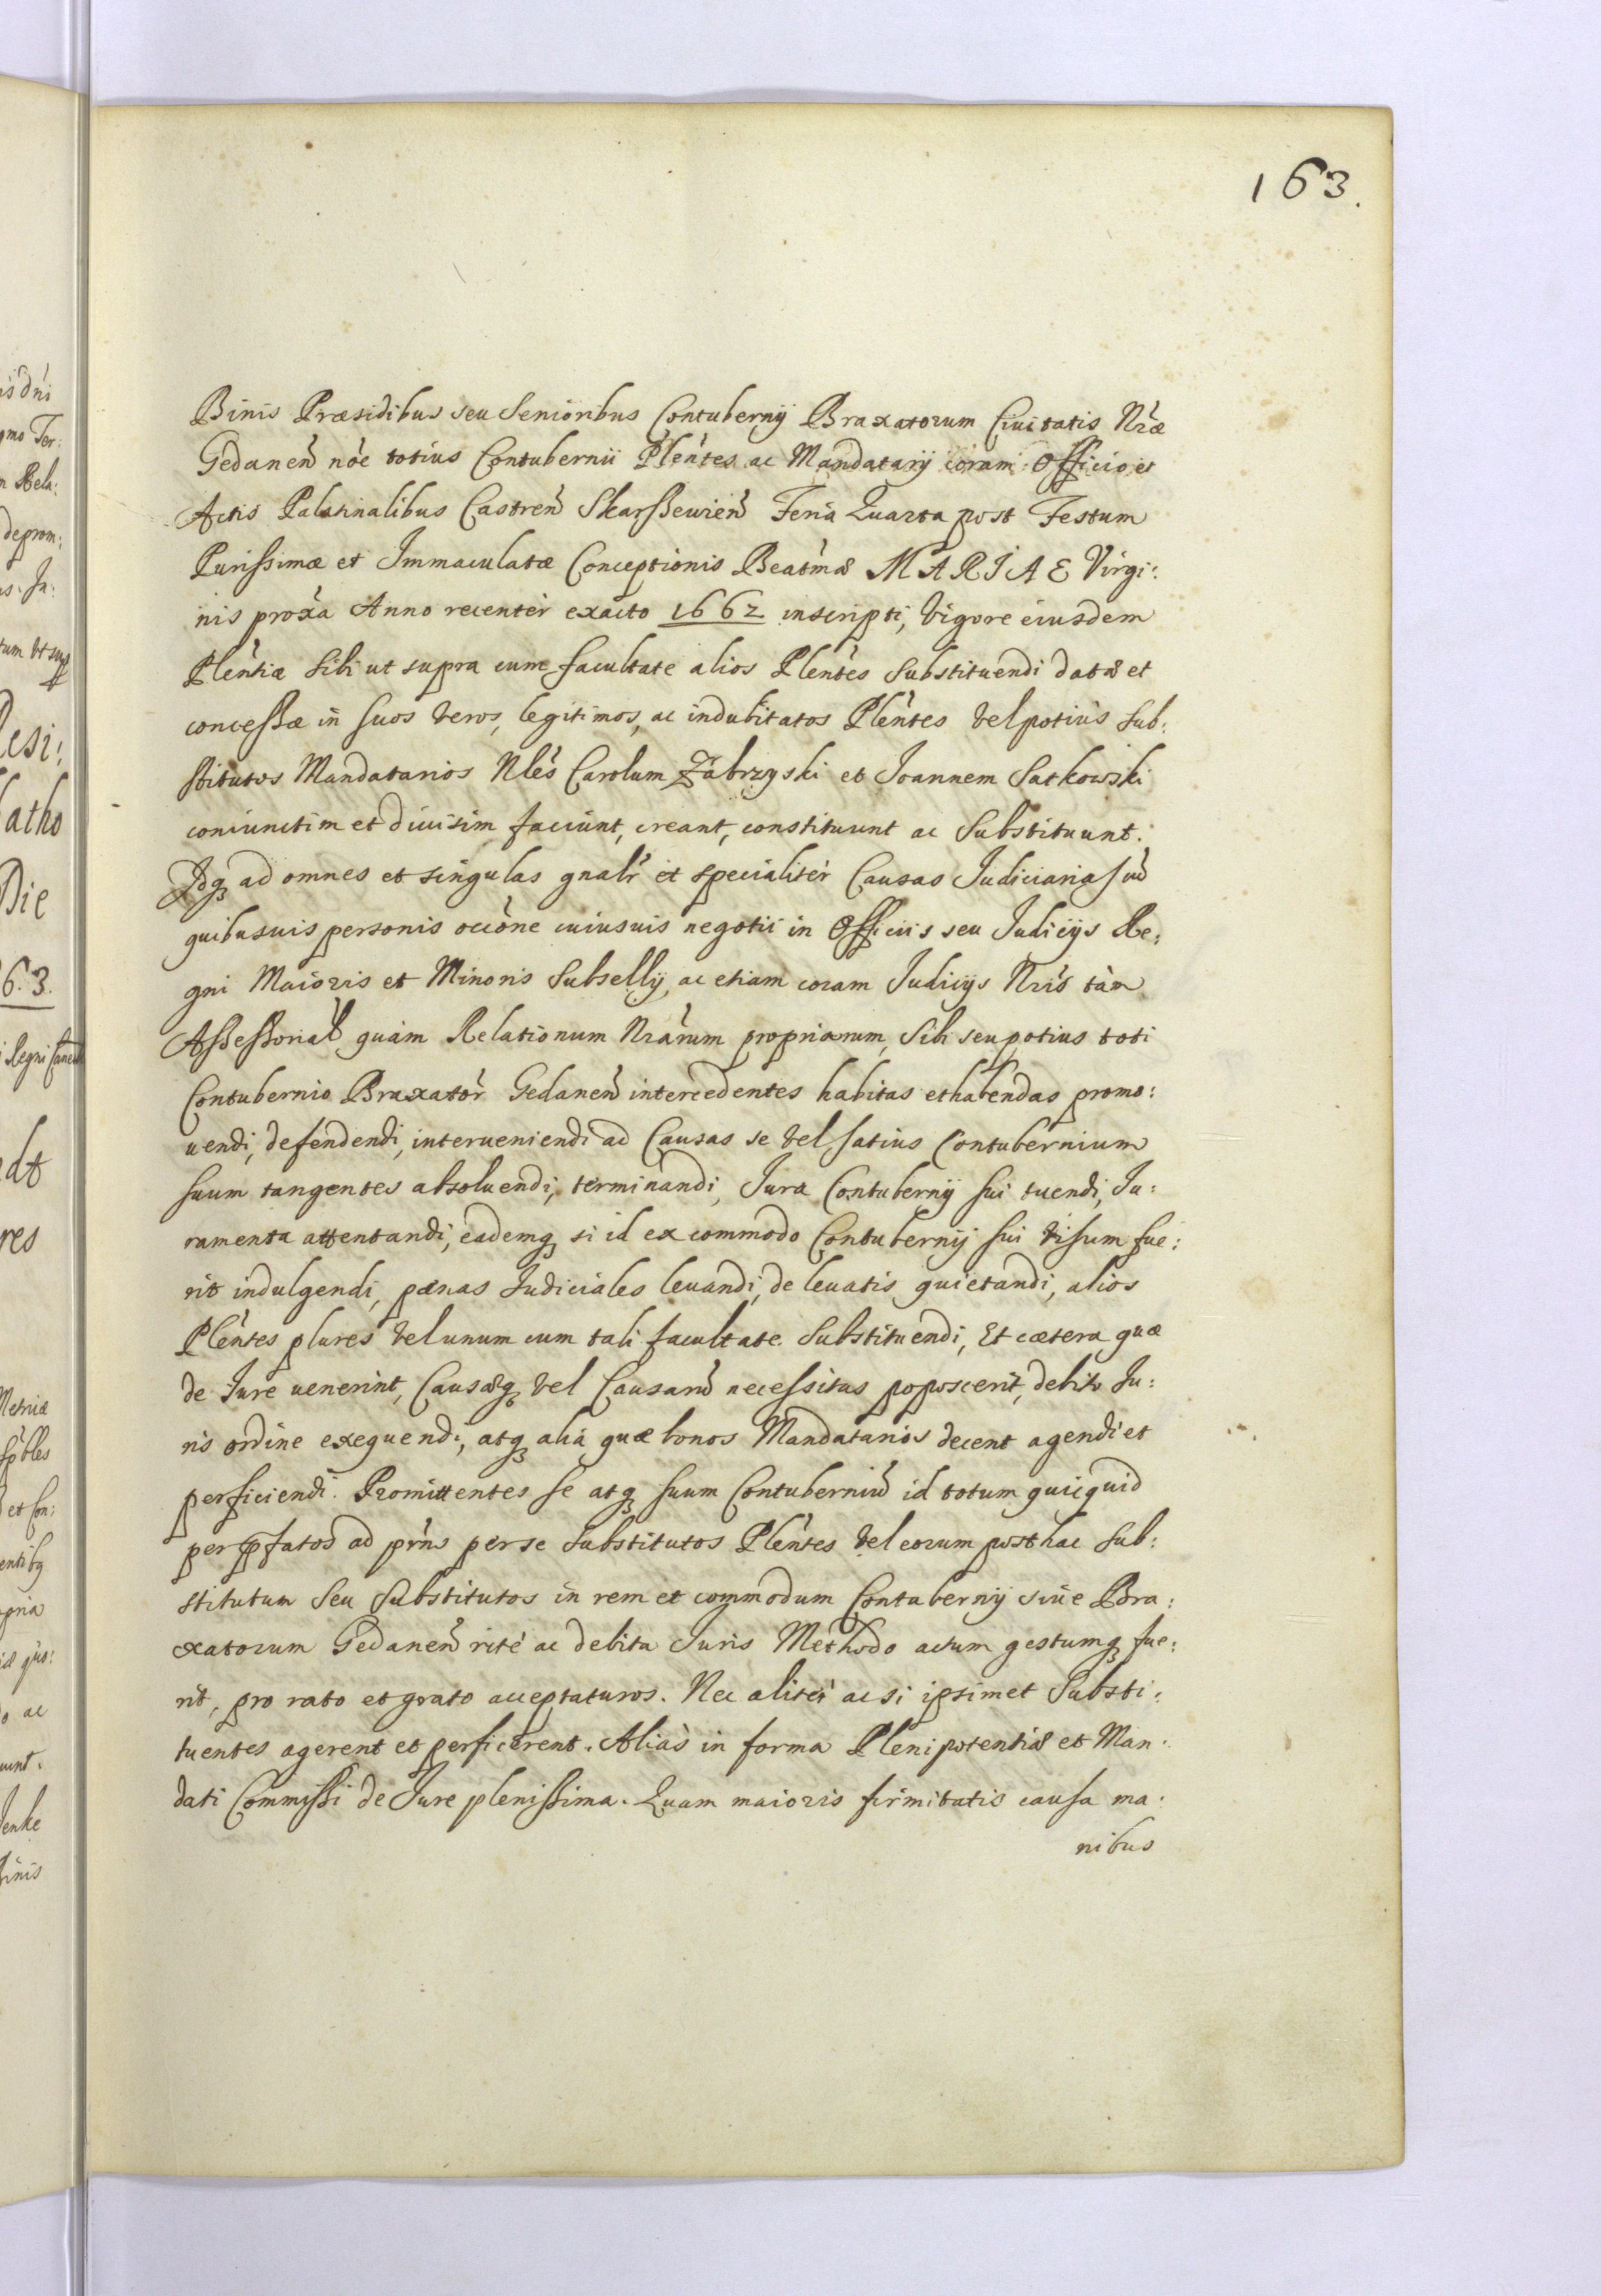 163.
Binis Præsidibus seu Senioribus Contubernij Braxatorum Ciuitatis Nræ
Gedanen nõe totius Contubernii Plentes ac Mandatarij coram Officio et
Actis Palatinalibus Castren Skarszewien Feria Quarta post Festum
Purissimæ et Immaculatæ Conceptionis Beatmæ MARIAE Virgi:
nis proxa Anno recenter exacto 1662 inscripti, Vigore eiusdem
Plentiæ sibi ut supra cum facultate alios Plentes substituendi datæ et
concessæ in suos veros, legitimos, ac indubitatos Plentes vel potius sub:
stitutos Mandatarios Nles Carolum Zabrzyski et Joannem Satkowski
coniunctim et diuisim faciunt, creant, constituunt ac substituunt.
Idq ad omnes et singulas gnalr et specialiter Causas Judiciarias cũ
quibusuis personis occõne cuiusuis negotii in Officiis seu Judicijs Re:
gni Maioris et Minoris Subsellij, ac etiam coram Judicijs Nris tàm
Assessorial quàm Relationum Nrarum propriarum, sibi seu potius toti
Contubernio Braxator Gedanen intercedentes habitas et habendas promo:
uendi, defendendi, interueniendi ad Causas se vel satius Contubernium
suum tangentes absoluendi, terminandi, Jura Contubernij sui tuendi, Ju:
ramenta attentandi, eademq si id ex commodo Contubernij sui visum fue:
rit indulgendi, pænas Judiciales leuandi, de leuatis quietandi, alios
Plentes plures vel unum cum tali facultate substituendi, Et cætera quæ
de Jure uenerint, Causæq vel Causarũ necessitas poposcerit, debito Ju:
ris ordine exequendi, atq alia quæ bonos Mandatarios decent agendi et
perficiendi. Promittentes se atq suum Contuberniũ id totum quicquid
per pfatos ad prns per se substitutos Plentes vel eorum post hac sub:
stitutum seu substitutos in rem et commodum Contubernij siue Bra:
xatorum Gedanen ritè ac debita Juris Methodo actum gestumq fue:
rit, pro rato et grato acceptaturos. Nec aliter ac si ipsimet Substi:
tuentes agerent et perficerent. Aliàs in forma Plenipotentiæ et Man:
dati Commissi de Jure plenissima. Quam maioris firmitatis causa ma:
nibus